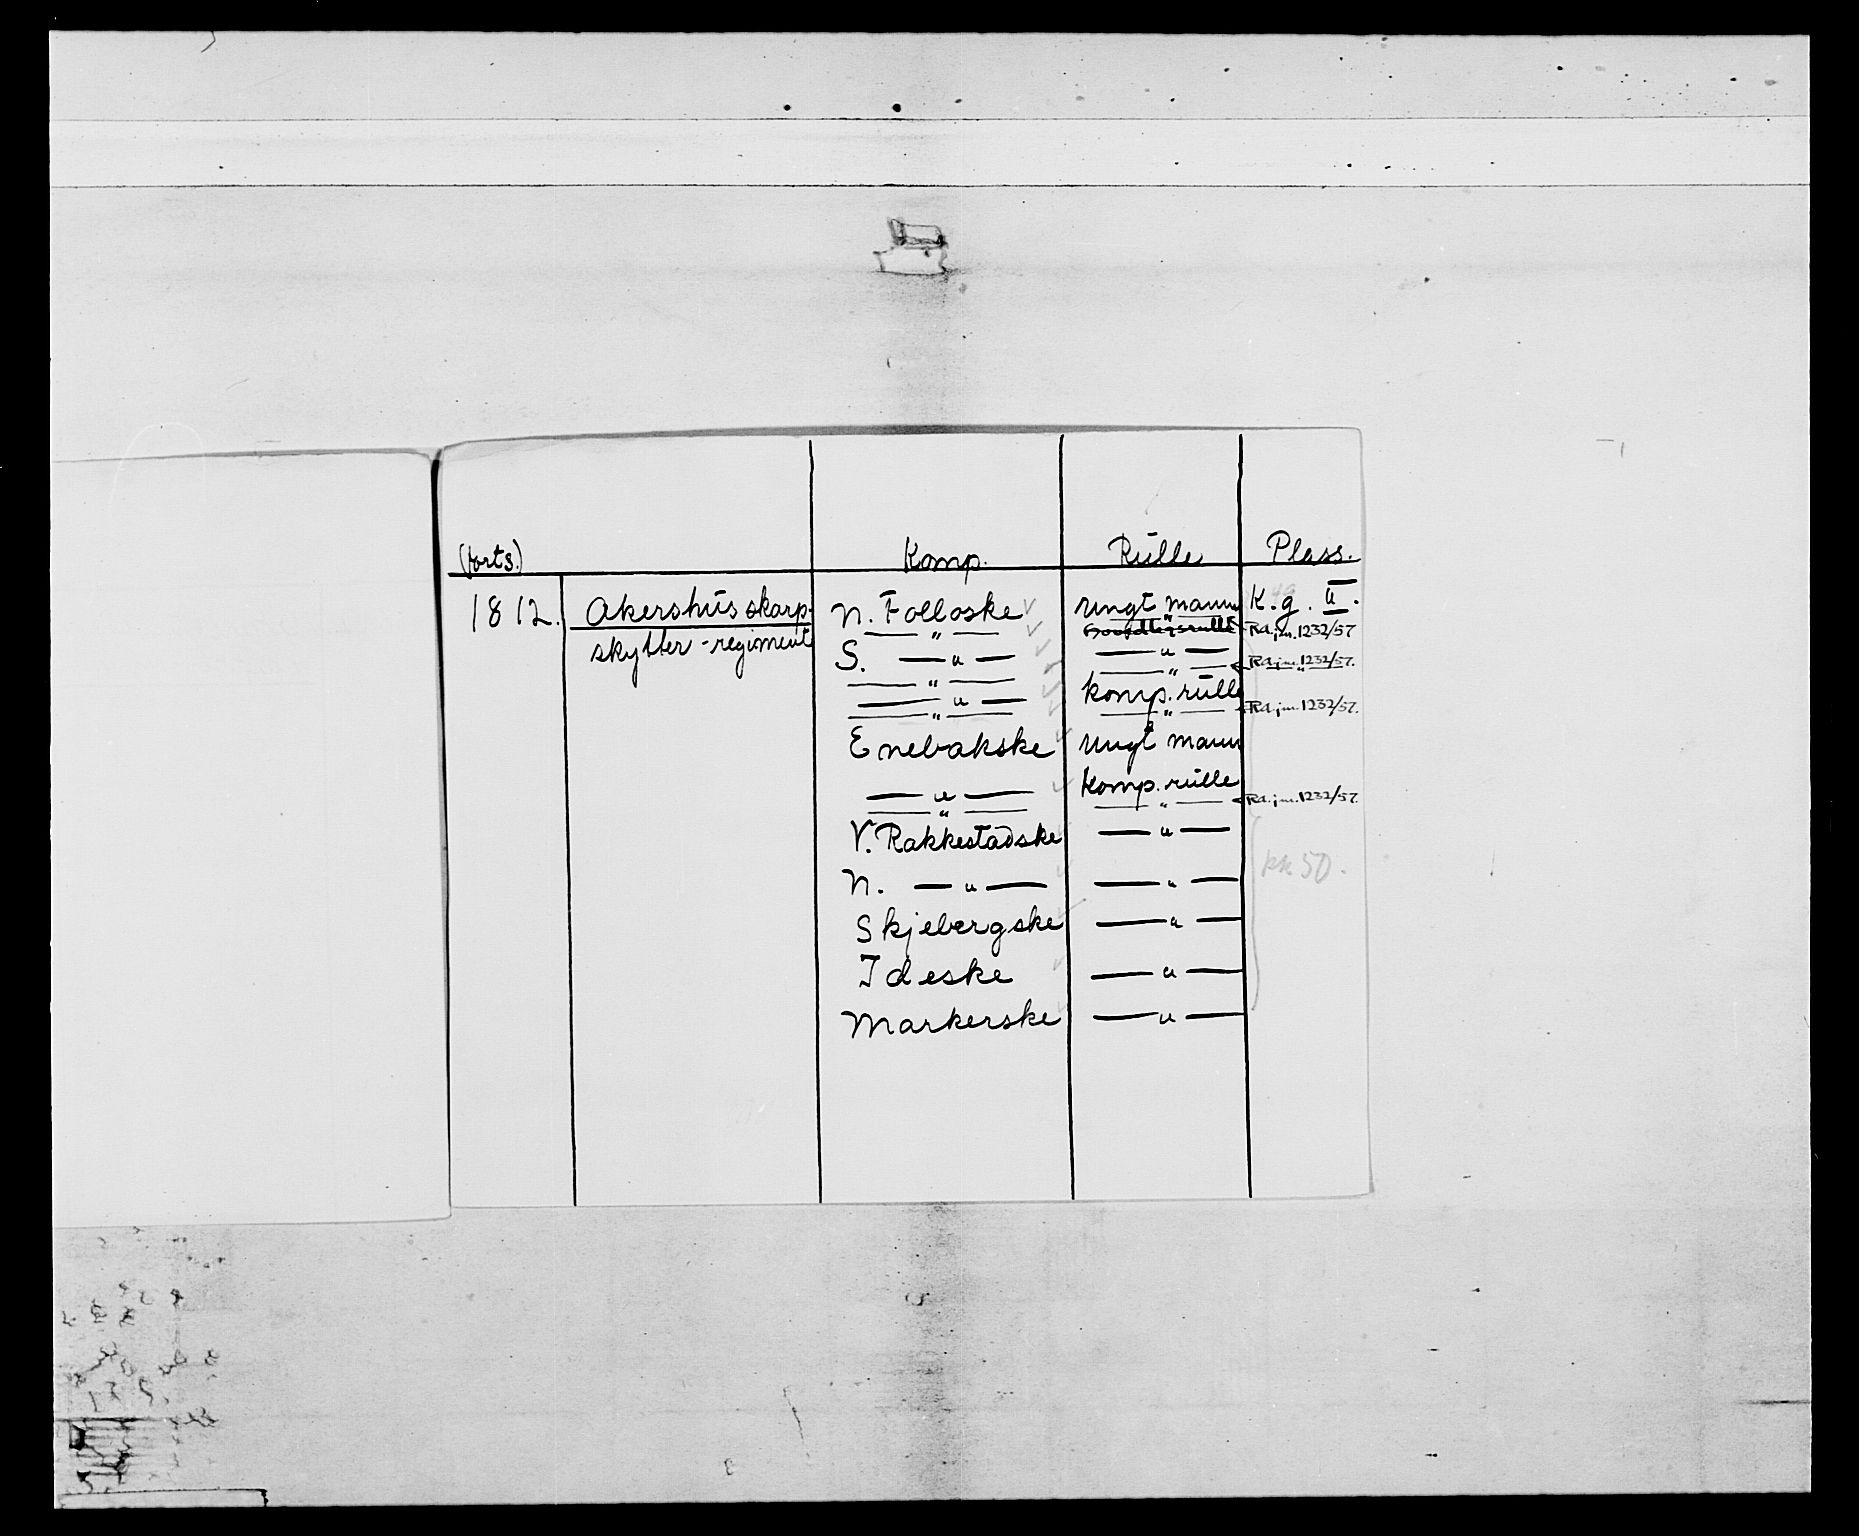 (forts.) Komp. Rulle Plass.
1812. Akershus skarp- N. Folloske ungt mann K.g. II.
skytter-regiment — " — — " — Rd. jnr. 1232/57
S. — " — — " —
— " — — " — Rd. jnr. 1232/57.
— " — komp. rulle
— " — — " — Rd. jnr. 1232/57.
Enebakske ungt mann
— " — Komp. rulle
— " — — " — Rd. jnr. 1232/57.
V. Rakkestadske — " —
pk 50.
N. — " — — " —
Skjebergske — " —
Ideske — " —
Markerske — " —